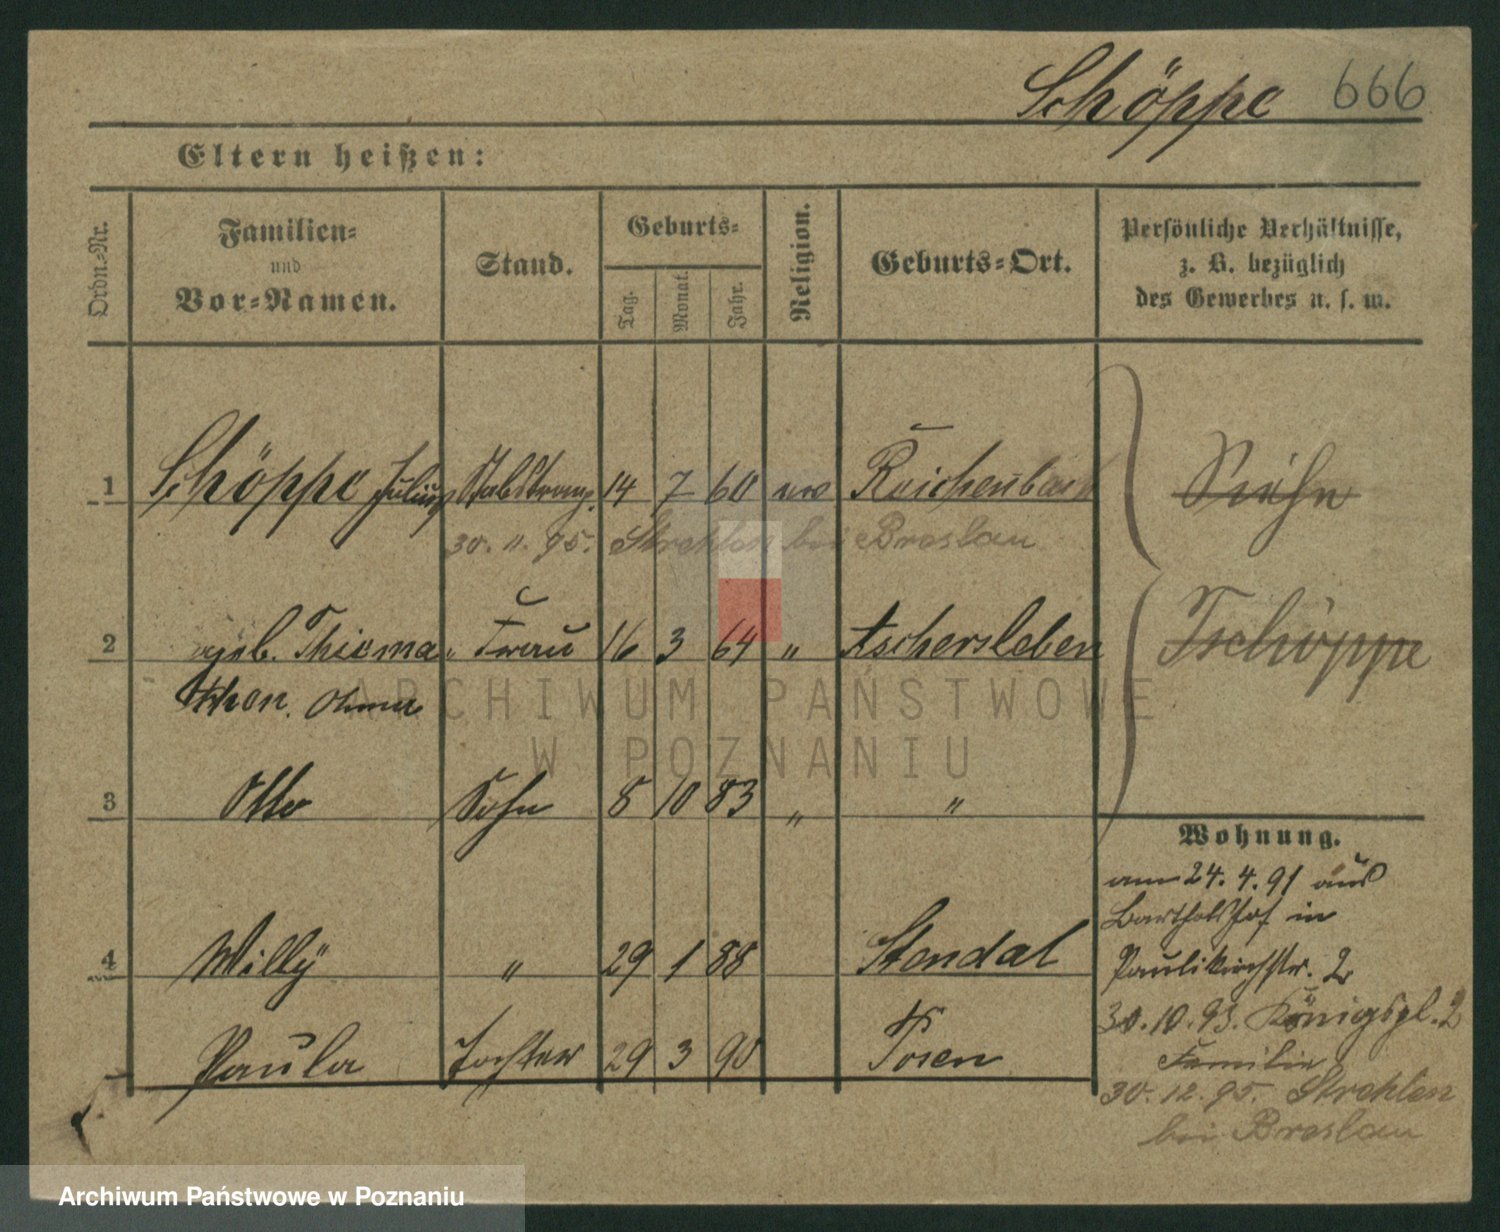 Schöppe 666
Eltern heißen:
Ordn.-Nr.
Familien-
und
Vor-Namen.
Stand.
Geburts-
Tag.
Monat.
Jahr.
Religion.
Geburts-Ort.
Persönliche Verhältnisse,
z. B. bezüglich
des Gewerbes u. s. w.
1 Schöppe Julius 14 7 60 Reichenbach
30. 11. 95. Strehlen bei Breslau
Siehe
Tschöppe
2 geb. Thiema Frau 16 3 64 " Aschersleben
ARCHIWUM PAŃSTWOWE
W POZNANIU
3 Otto Sohn 8 10 83 " "
Wohnung.
am 24. 4. 91 aus
Bartholdshof in
Paulikirchstr. 2
30. 10. 93. Königspl. 2
Familie
30. 12. 95. Strehlen
bei Breslau
4 Willy " 29 1 88 Stendal
Paula Tochter 29 3 90 Posen
Archiwum Państwowe w Poznaniu